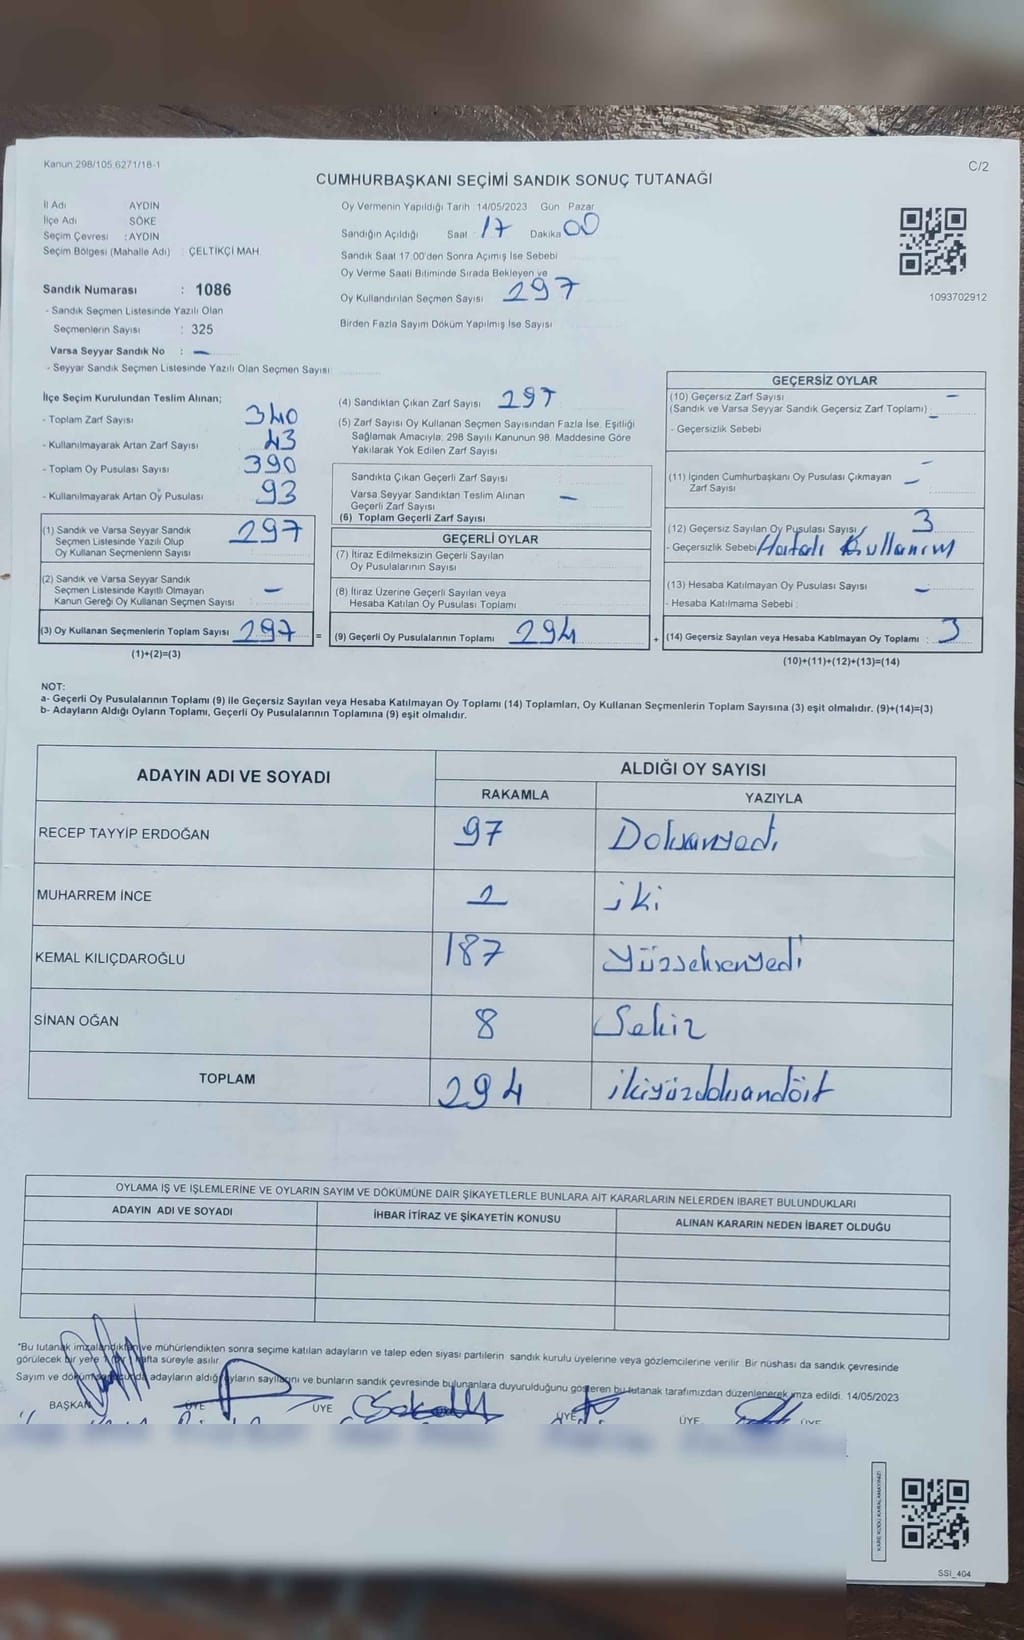 Kanun 298/105,6271/18-1
C/2
CUMHURBAŞKANI SEÇİMİ SANDIK SONUÇ TUTANAĞI
İl Adı AYDIN
İlçe Adı SÖKE
Seçim Çevresi : AYDIN
Seçim Bölgesi (Mahalle Adı) : ÇELTİKÇİ MAH
Sandık Numarası : 1086
- Sandık Seçmen Listesinde Yazılı Olan
Seçmenlerin Sayısı : 325
Varsa Seyyar Sandık No : —
- Seyyar Sandık Seçmen Listesinde Yazılı Olan Seçmen Sayısı
Oy Vermenin Yapıldığı Tarih 14/05/2023 Gün Pazar
Sandığın Açıldığı Saat 17 Dakika 00
Sandık Saat 17.00'den Sonra Açımış İse Sebebi
Oy Verme Saati Bitiminde Sırada Bekleyen ve
Oy Kullandırılan Seçmen Sayısı 297
Birden Fazla Sayım Döküm Yapılmış İse Sayısı
1093702912
İlçe Seçim Kurulundan Teslim Alınan;
- Toplam Zarf Sayısı 340
- Kullanılmayarak Artan Zarf Sayısı 43
- Toplam Oy Pusulası Sayısı 390
- Kullanılmayarak Artan Oy Pusulası 93
(1) Sandık ve Varsa Seyyar Sandık
Seçmen Listesinde Yazılı Olup
Oy Kullanan Seçmenlerin Sayısı 297
(2) Sandık ve Varsa Seyyar Sandık
Seçmen Listesinde Kayıtlı Olmayan
Kanun Gereği Oy Kullanan Seçmen Sayısı —
(3) Oy Kullanan Seçmenlerin Toplam Sayısı 297 =
(1)+(2)=(3)
(4) Sandıktan Çıkan Zarf Sayısı 297
(5) Zarf Sayısı Oy Kullanan Seçmen Sayısından Fazla İse, Eşitliği
Sağlamak Amacıyla, 298 Sayılı Kanunun 98. Maddesine Göre
Yakılarak Yok Edilen Zarf Sayısı
Sandıkta Çıkan Geçerli Zarf Sayısı
Varsa Seyyar Sandıktan Teslim Alınan
Geçerli Zarf Sayısı —
(6) Toplam Geçerli Zarf Sayısı
GEÇERLİ OYLAR
(7) İtiraz Edilmeksizin Geçerli Sayılan
Oy Pusulalarının Sayısı
(8) İtiraz Üzerine Geçerli Sayılan veya
Hesaba Katılan Oy Pusulası Toplamı
(9) Geçerli Oy Pusulalarının Toplamı 294 +
GEÇERSİZ OYLAR
(10) Geçersiz Zarf Sayısı —
(Sandık ve Varsa Seyyar Sandık Geçersiz Zarf Toplamı)
- Geçersizlik Sebebi
(11) İçinden Cumhurbaşkanı Oy Pusulası Çıkmayan
Zarf Sayısı —
(12) Geçersiz Sayılan Oy Pusulası Sayısı 3
- Geçersizlik Sebebi Hatalı Kullanım
(13) Hesaba Katılmayan Oy Pusulası Sayısı —
- Hesaba Katılmama Sebebi
(14) Geçersiz Sayılan veya Hesaba Katılmayan Oy Toplamı : 3
(10)+(11)+(12)+(13)=(14)
NOT:
a- Geçerli Oy Pusulalarının Toplamı (9) ile Geçersiz Sayılan veya Hesaba Katılmayan Oy Toplamı (14) Toplamları, Oy Kullanan Seçmenlerin Toplam Sayısına (3) eşit olmalıdır. (9)+(14)=(3)
b- Adayların Aldığı Oyların Toplamı, Geçerli Oy Pusulalarının Toplamına (9) eşit olmalıdır.
ADAYIN ADI VE SOYADI ALDIĞI OY SAYISI
RAKAMLA YAZIYLA
RECEP TAYYİP ERDOĞAN 97 Doksanyedi
MUHARREM İNCE 2 iki
KEMAL KILIÇDAROĞLU 187 Yüzseksenyedi
SİNAN OĞAN 8 Sekiz
TOPLAM 294 ikiyüzdoksandört
OYLAMA İŞ VE İŞLEMLERİNE VE OYLARIN SAYIM VE DÖKÜMÜNE DAİR ŞİKAYETLERLE BUNLARA AİT KARARLARIN NELERDEN İBARET BULUNDUKLARI
ADAYIN ADI VE SOYADI İHBAR İTİRAZ VE ŞİKAYETİN KONUSU ALINAN KARARIN NEDEN İBARET OLDUĞU
*Bu tutanak imzalandıktan ve mühürlendikten sonra seçime katılan adayların ve talep eden siyasi partilerin sandık kurulu üyelerine veya gözlemcilerine verilir. Bir nüshası da sandık çevresinde
görülecek bir yere hafta süreyle asılır.
Sayım ve döküm adayların aldığı oyların sayılarını ve bunların sandık çevresinde bulunanlara duyurulduğunu gösteren bu tutanak tarafımızdan düzenlenerek imza edildi. 14/05/2023
BAŞKAN ÜYE ÜYE ÜYE ÜYE ÜYE
KARE KODU KARALAMAYINIZ!
SSI_404